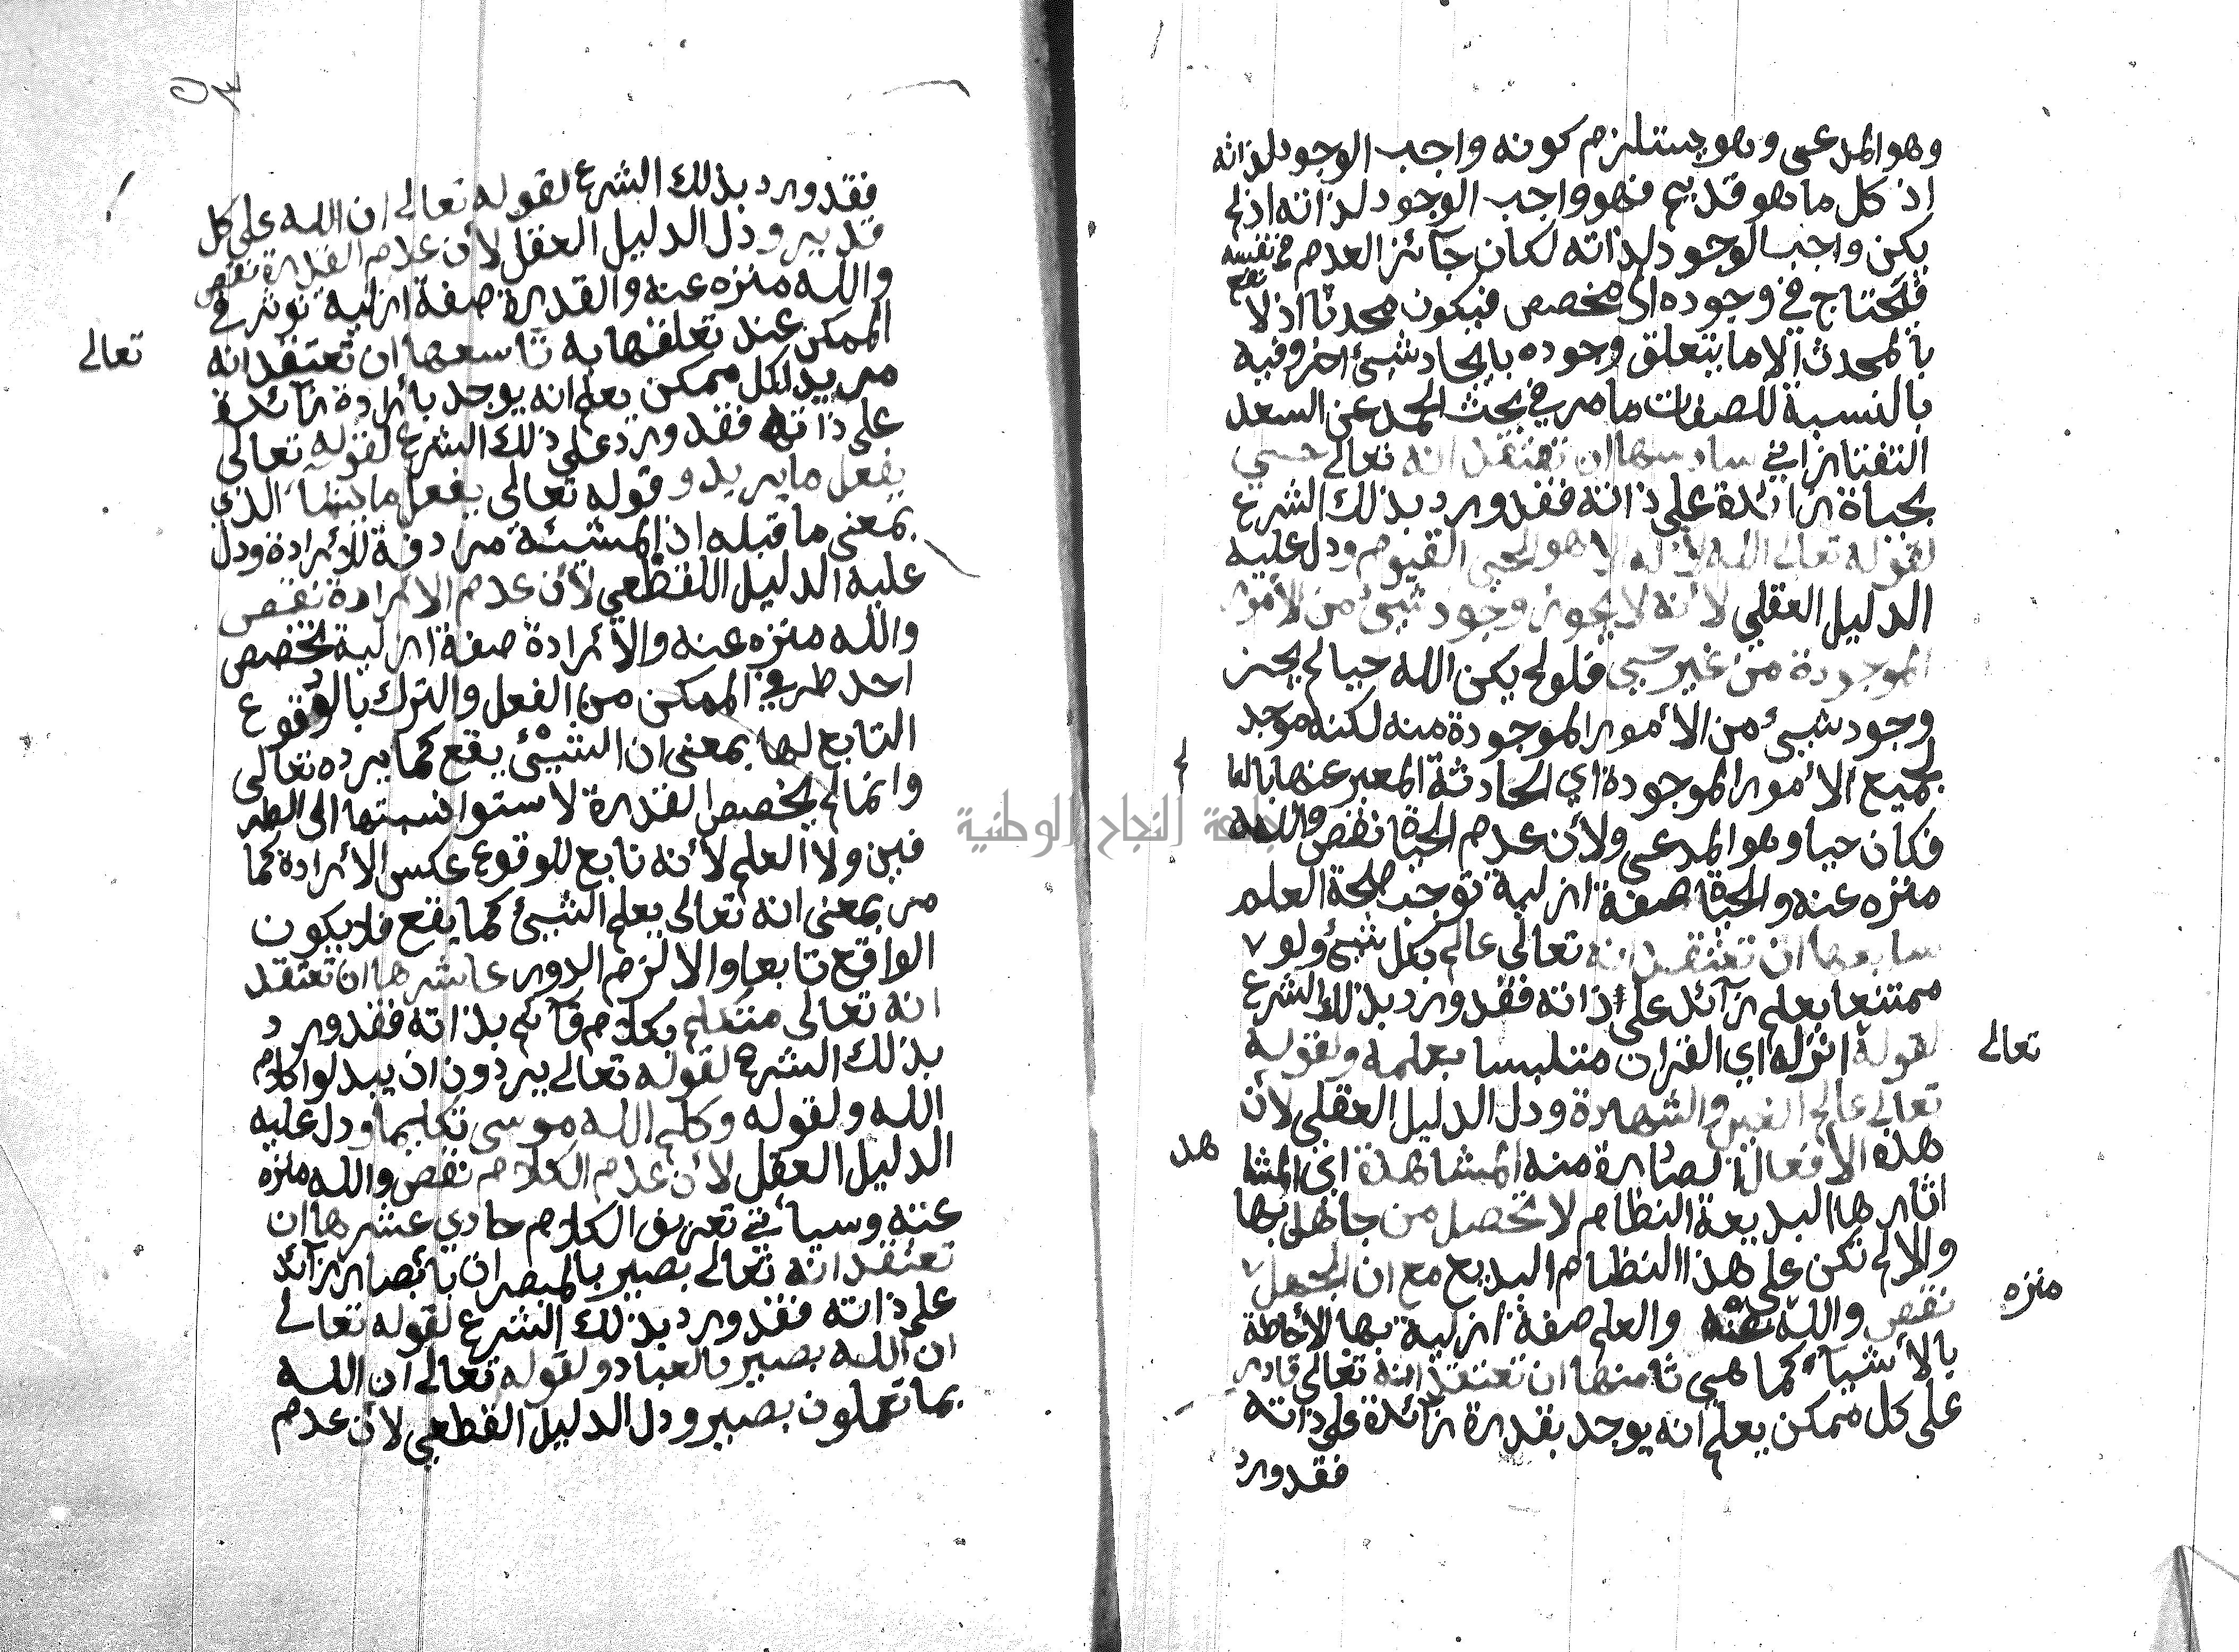 وهو المدعى وهو يستلزم كونه واجب الوجود لذاته
اذ كل ما هو قديم فهو واجب الوجود لذاته اذ لم
يكن واجب الوجود لذاته لكان جآئز العدم في نفسه
فيحتاج في وجوده الى مخصص فيكون محدثا اذ لا نعني
بالمحدث الا ما يتعلق وجوده بايجاد شيئ اخر وفيه
بالنسبة للصفات ما مر في بحث الحمد عن السعد
التفتازاني سادسها ان تعتقد انه تعالى حي
بحياة زائدة على ذاته فقد ورد بذلك الشرع
لقوله تعالى الله لا اله الا هو الحي القيوم ودل عليه
الدليل العقلي لأنه لا يجوز وجود شيئ من الأمور
الموجودة من غير حي فلو لم يكن الله حيا لم يجز
وجود شيئ من الأمور الموجودة منه لكنه موجد
لجميع الأمور الموجودة اي الحادثة المعبر عنها بالعا لم
فكان حيا وهو المدعى ولأن عدم الحياة نقص والله
منزه عنه والحياة صفة ازلية توجب صحة العلم
سابعها ان تعتقد انه تعالى عالم بكل شيئ ولو
ممتنعا بعلم زآئد على ذاته فقد ورد بذلك الشرع
لقوله تعالى انزله اي القران متلبسا بعلمه ولقوله
تعالى عالم الغيب والشهادة ودل الدليل العقلي لأن
هذه الأفعال الصادرة منه المشاهدة اي المشا هد
اثارها البديعة النظام لا تحصل من جاهل بها
والا لم تكن على هذا النظام البديع مع ان الجهل
نقص والله منزه عنه والعلم صفة ازلية بها الأحاطة
بالأشيآء كما هي ثامنها ان تعتقد انه تعالى قادر
على كل ممكن يعلم انه يوجد بقدرة زآئدة على ذاته
فقد ورد
فقد ورد بذلك الشرع لقوله تعالى ان الله على كل
قدير ودل الدليل العقل لأن عدم القدرة نقص
والله منزه عنه والقدرة صفة ازلية توثر في
الممكن عند تعلقها به تاسعها ان تعتقد انه تعالى
مريد لكل ممكن يعلم انه يوجد بأرادة زآئدة
على ذاته فقد ورد على ذلك الشرع لقوله تعالى
يفعل ما يريد وقوله تعالى يفعل ما يشآء الذي
بمعنى ما قبله اذ المشيئة مرادفة للأرادة ودل
عليه الدليل القطعي لأن عدم الارادة نقص
والله منزه عنه والأرادة صفة ازلية تخصص
احد طرفي الممكن من الفعل والترك بالوقوع
التابع لها بمعنى ان الشيئ يقع كما يرده تعالى
وانما لم يخصص القدرة لاستوا نسبتها الى الطر
فين ولا العلم لأنه تابع للوقوع عكس الأرادة كما
مر بمعنى انه تعالى يعلم الشيئ كما يقع فلا يكون
الواقع تابعا والا لزم الدور عاشرها ان تعتقد
انه تعالى متكلم بكلام قآئم بذاته فقد ورد
بذلك الشرع لقوله تعالى يردون ان يبدلوا كلام
الله ولقوله وكلم الله موسى تكليما ودل عليه
الدليل العقل لأن عدم الكلام نقص والله منزه
عنه وسيأتي تعريف الكلام حادي عشرها ان
تعتقد انه تعالى بصير بالمبصرات بأبصار زآئد
على ذاته فقد ورد بذلك الشرع لقوله تعالى
ان الله بصير بالعباد ولقوله تعالى ان الله
بما تعملون بصير ودل الدليل القطعي لأن عدم
جامعة النجاح الوطنية